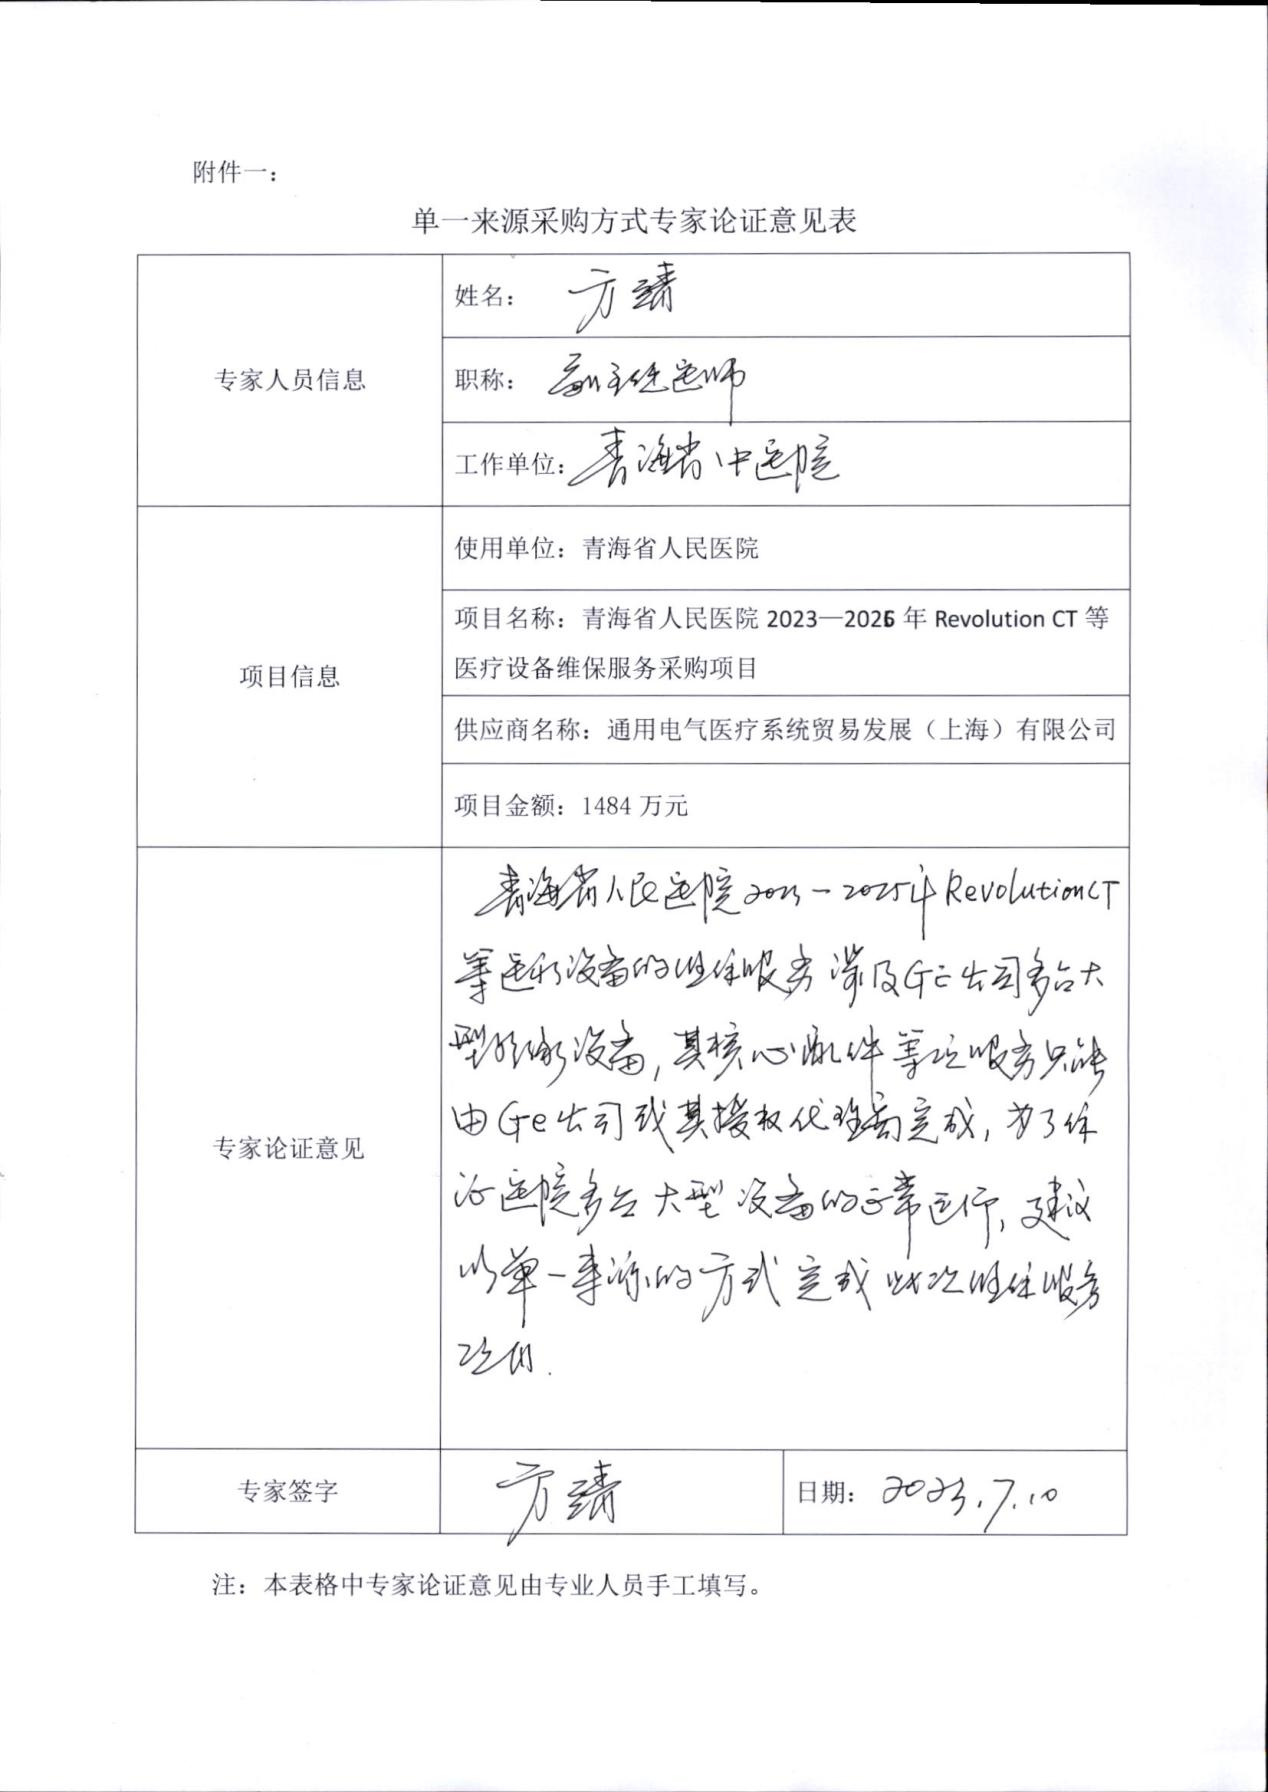 附件一：
单一来源采购方式专家论证意见表
专家人员信息
姓名： 方靖
职称： 副主任医师
工作单位： 青海省中医院
项目信息
使用单位：青海省人民医院
项目名称：青海省人民医院 2023—2025 年 Revolution CT 等
医疗设备维保服务采购项目
供应商名称：通用电气医疗系统贸易发展（上海）有限公司
项目金额：1484 万元
专家论证意见
青海省人民医院2023-2025年Revolution CT
等医疗设备的维保服务涉及Ge公司多台大
型影像设备，其核心配件等这服务只能
由Ge公司或其授权代理商完成，为了保
证医院多台大型设备的正常运行，建议
以单一来源的方式完成此次维保服务
采购.
专家签字
方靖
日期： 2023.7.10
注：本表格中专家论证意见由专业人员手工填写。